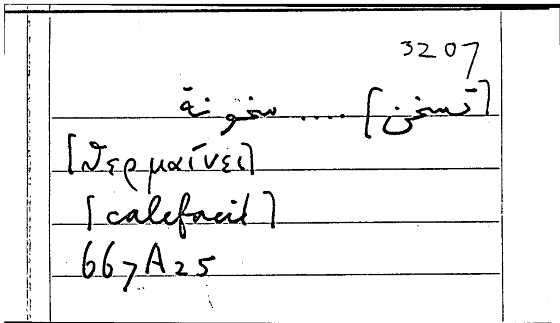 3207
[تسخن] .... سخونة
[θερμαίνει]
[calefacit]
667A25